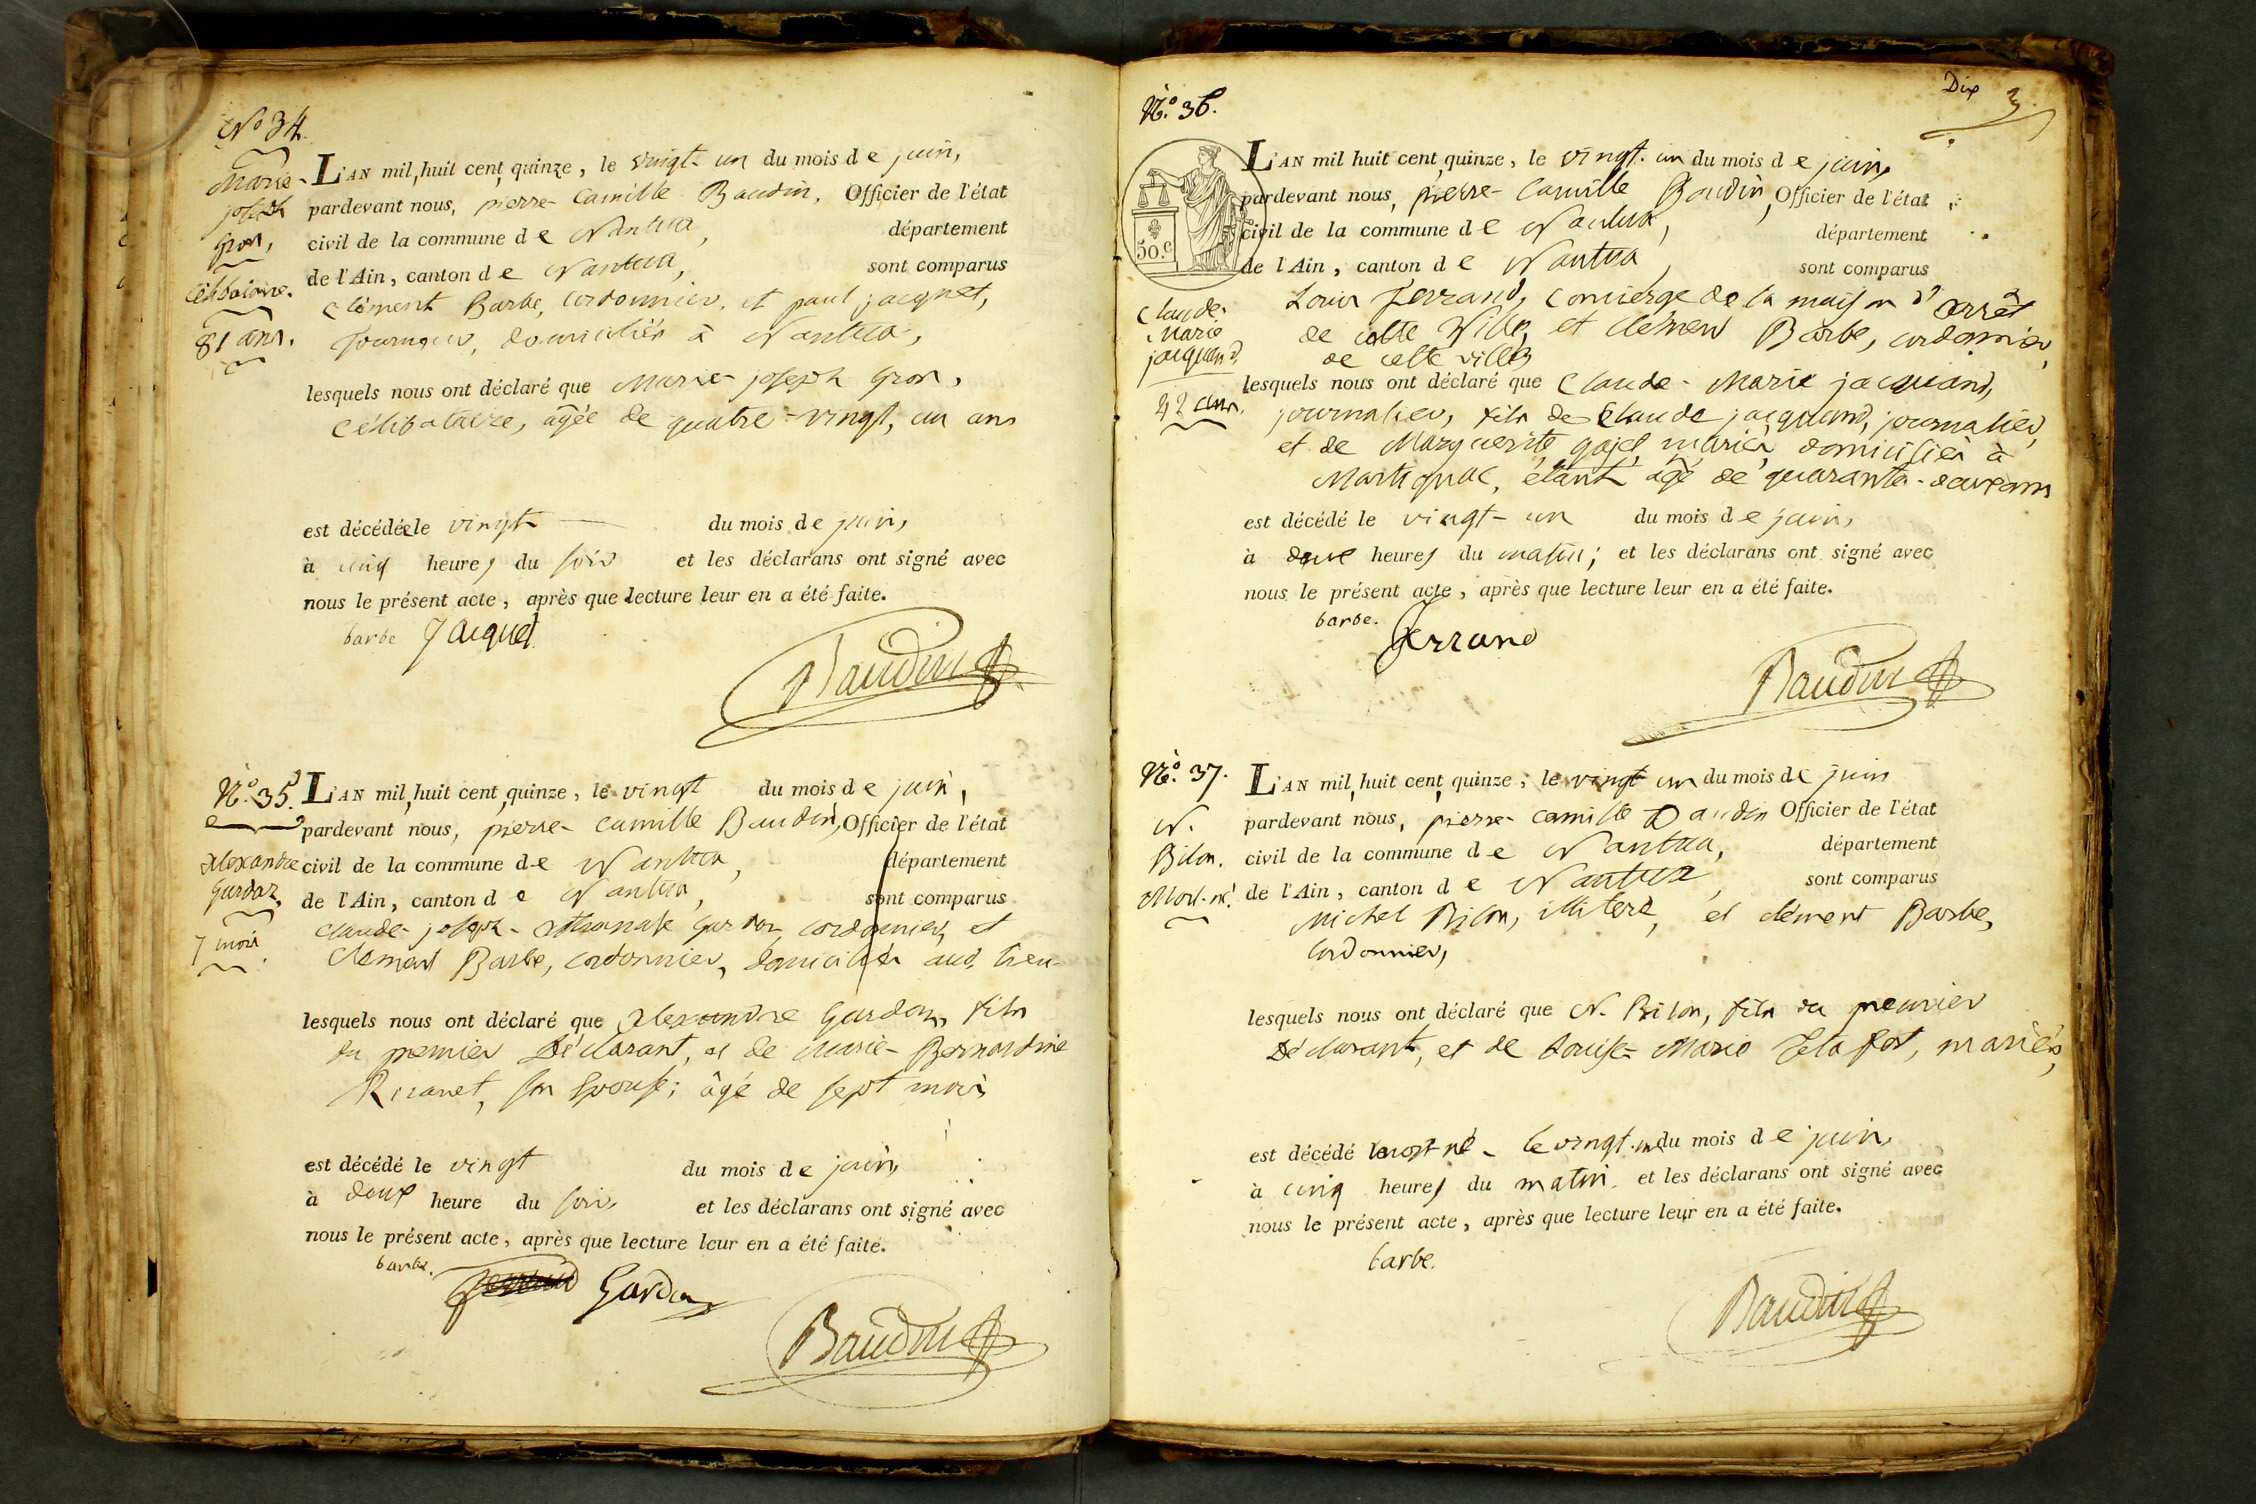 No 34.
Marie-
joseph
Gros,
célibataire.
81 ans.
L'AN mil, huit cent, quinze, le vingt-un du mois de juin,
pardevant nous, pierre-camille Baudin, Officier de l'état
civil de la commune de Nantua, département
de l'Ain, canton de Nantua, sont comparus
Clément Barbe, cordonnier, et paul jacquet,
domiciliés à Nantua,
lesquels nous ont déclaré que Marie-joseph Gros,
célibataire, âgée de quatre-vingt, un ans
est décédée le vingt du mois de juin,
à cinq heures du soir et les déclarans ont signé avec
nous le présent acte, après que lecture leur en a été faite.
barbe Jacquet
Baudin
No. 35.
alexandre
Gardaz,
7 mois.
L'AN mil, huit cent, quinze, le vingt du mois de juin,
pardevant nous, pierre-camille Baudin, Officier de l'état
civil de la commune de Nantua, département
de l'Ain, canton de Nantua, sont comparus
claude-joseph-athanase Gardaz, cordonnier, et
Clément Barbe, cordonnier, domiciliés aud. lieu
lesquels nous ont déclaré que alexandre Gardaz, fils
du premier Déclarant, et de Marie-Bernardine
son Epouse; âgé de sept mois
est décédé le vingt du mois de juin,
à deux heure du soir, et les déclarans ont signé avec
nous le présent acte, après que lecture leur en a été faite.
barbe. Gardaz
Baudin
Dix 3
No. 36.
50.c
Claude-
Marie
jacquand,
42 ans.
L'AN mil huit cent, quinze, le vingt-un du mois de juin,
pardevant nous, pierre-camille Baudin, Officier de l'état
civil de la commune de Nantua, département
de l'Ain, canton de Nantua, sont comparus
Louis ferrand, concierge de la maison d'arrêt
de cette Ville, et clément Barbe, cordonnier,
de cette ville
lesquels nous ont déclaré que Claude-Marie jacquand,
journalier, fils de Claude jacquand, journalier,
et de Marguerite gojet, mariés, domiciliés à
Martignac, étant âgé de quarante-deux ans
est décédé le vingt-un du mois de juin,
à deux heures du matin; et les déclarans ont signé avec
nous le présent acte, après que lecture leur en a été faite.
barbe.
ferrand
Baudin
No. 37.
N.
Bilon.
Mort-né.
L'AN mil, huit cent, quinze, le vingt un du mois de juin
pardevant nous, pierre-camille Baudin Officier de l'état
civil de la commune de Nantua, département
de l'Ain, canton de Nantua, sont comparus
Michel Bilon, illiteré, et clément Barbe,
cordonnier,
lesquels nous ont déclaré que N. Bilon, fils du premier
Déclarant, et de Louise-Marie mariés,
est décédé mort né - le vingt-un du mois de juin,
à cinq heures du matin. et les déclarans ont signé avec
nous le présent acte, après que lecture leur en a été faite.
barbe.
Baudin